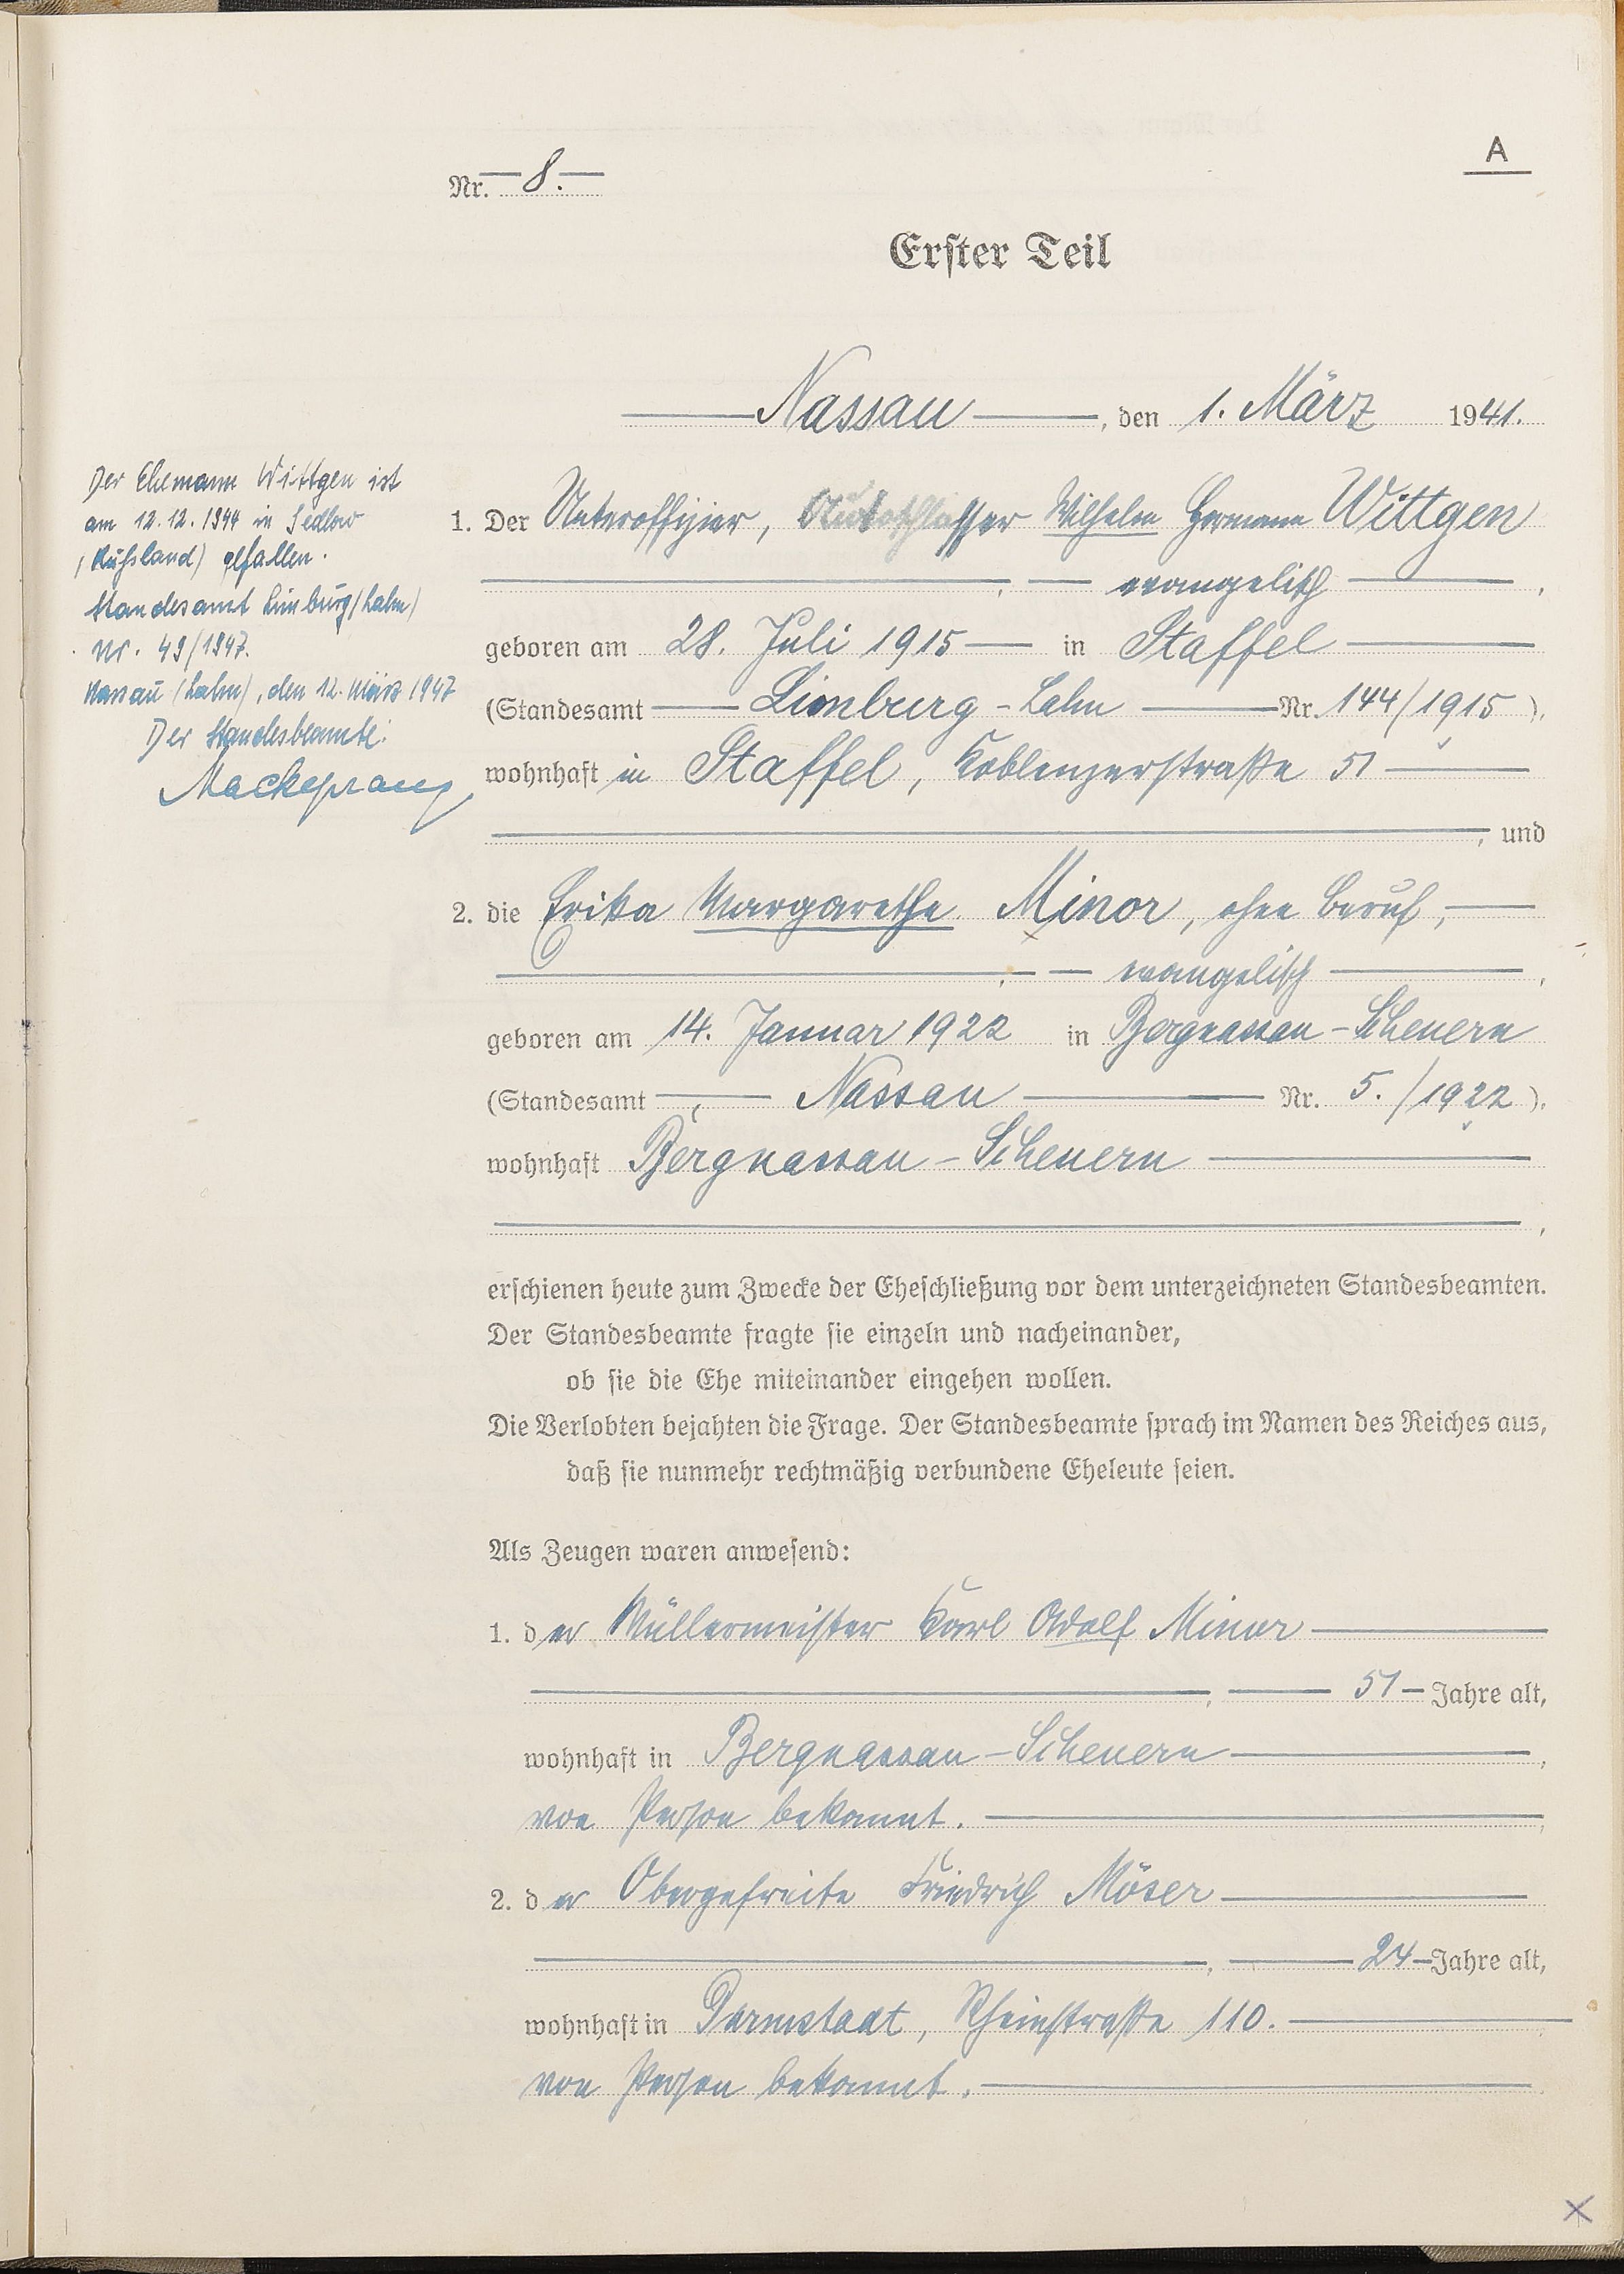 A
Nr. 8.
Erster Teil
Nassau, den 1. März 1941.
Der Ehemann Wittgen ist
am 12.12.1944 in Sedlow
(Rußland) gefallen.
Standesamt Limburg (Lahn)
Nr. 49/1947.
Nassau (Lahn), den 12. März 1947
Der Standesbeamte:
Mackeprang
1. Der Unteroffizier, Autoschlosser Wilhelm Hermann Wittgen
, evangelisch,
geboren am 28. Juli 1915 in Staffel
(Standesamt Limburg-Lahn Nr. 144/1915).
wohnhaft in Staffel, Koblenzerstraße 51
, und
2. die Erika Margarethe Minor, ohne Beruf,
, evangelisch,
geboren am 14. Januar 1922 in Bergnassau-Scheuern
(Standesamt Nassau Nr. 5./1922).
wohnhaft Bergnassau-Scheuern
,
erschienen heute zum Zwecke der Eheschließung vor dem unterzeichneten Standesbeamten.
Der Standesbeamte fragte sie einzeln und nacheinander,
ob sie die Ehe miteinander eingehen wollen.
Die Verlobten bejahten die Frage. Der Standesbeamte sprach im Namen des Reiches aus,
daß sie nunmehr rechtmäßig verbundene Eheleute seien.
Als Zeugen waren anwesend:
1. der Müllermeister Karl Adolf Minor
, 51 Jahre alt,
wohnhaft in Bergnassau-Scheuern,
von Person bekannt.
2. der Obergefreite Friedrich Möser
, 24 Jahre alt,
wohnhaft in Darmstadt, Rheinstraße 110.
von Person bekannt.